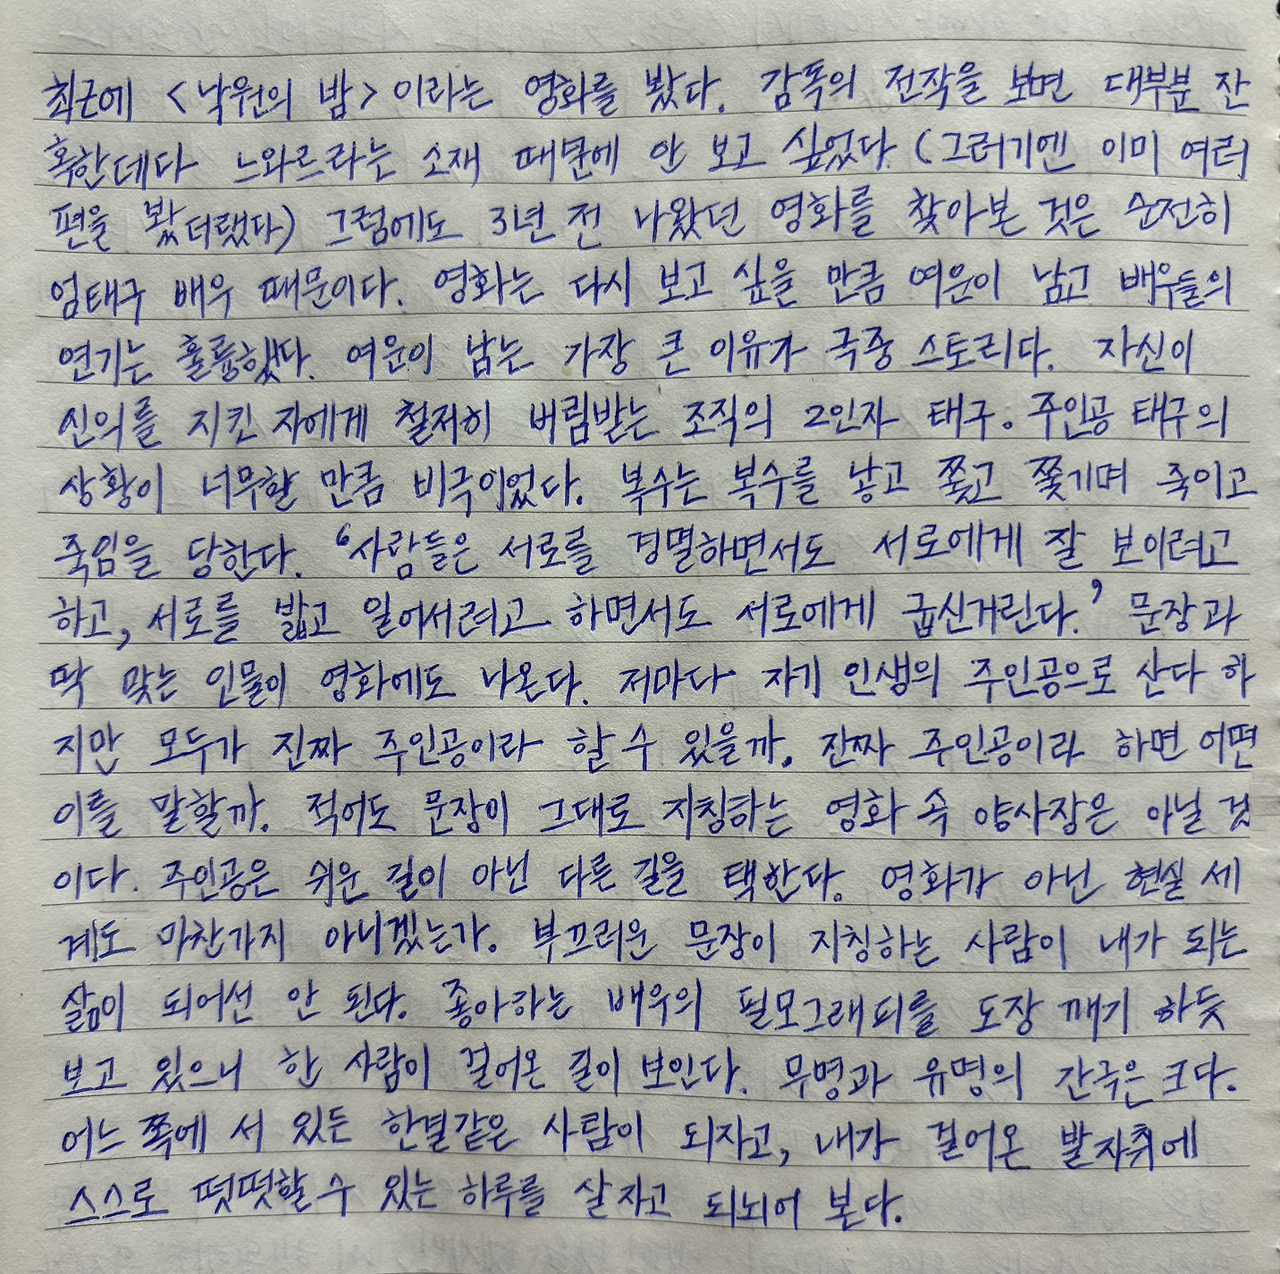 최근에 <낙원의 밤> 이라는 영화를 봤다. 감독의 전작을 보면 대부분 잔
혹한데다 느와르라는 소재 때문에 안 보고 싶었다 (그러기엔 이미 여러
편을 봤더랬다) 그럼에도 3년 전 나왔던 영화를 찾아본 것은 순전히
엄태구 배우 때문이다. 영화는 다시 보고 싶을 만큼 여운이 남고 배우들의
연기는 훌륭했다. 여운이 남는 가장 큰 이유가 극중 스토리다. 자신이
신의를 지킨 자에게 철저히 버림받는 조직의 2인자 태구. 주인공 태구의
상황이 너무할 만큼 비극이었다. 복수는 복수를 낳고 쫓고 쫓기며 죽이고
죽임을 당한다. '사람들은 서로를 경멸하면서도 서로에게 잘 보이려고
하고, 서로를 밟고 일어서려고 하면서도 서로에게 굽신거린다.' 문장과
딱 맞는 인물이 영화에도 나온다. 저마다 자기 인생의 주인공으로 산다 하
지만 모두가 진짜 주인공이라 할 수 있을까. 진짜 주인공이라 하면 어떤
이를 말할까. 적어도 문장이 그대로 지칭하는 영화 속 양사장은 아닐 것
이다. 주인공은 쉬운 길이 아닌 다른 길을 택한다. 영화가 아닌 현실 세
계도 마찬가지 아니겠는가. 부끄러운 문장이 지칭하는 사람이 내가 되는
삶이 되어선 안 된다. 좋아하는 배우의 필모그래피를 도장 깨기 하듯
보고 있으니 한 사람이 걸어온 길이 보인다. 무명과 유명의 간극은 크다.
어느 쪽에 서 있든 한결같은 사람이 되자고, 내가 걸어온 발자취에
스스로 떳떳할 수 있는 하루를 살자고 되뇌어 본다.